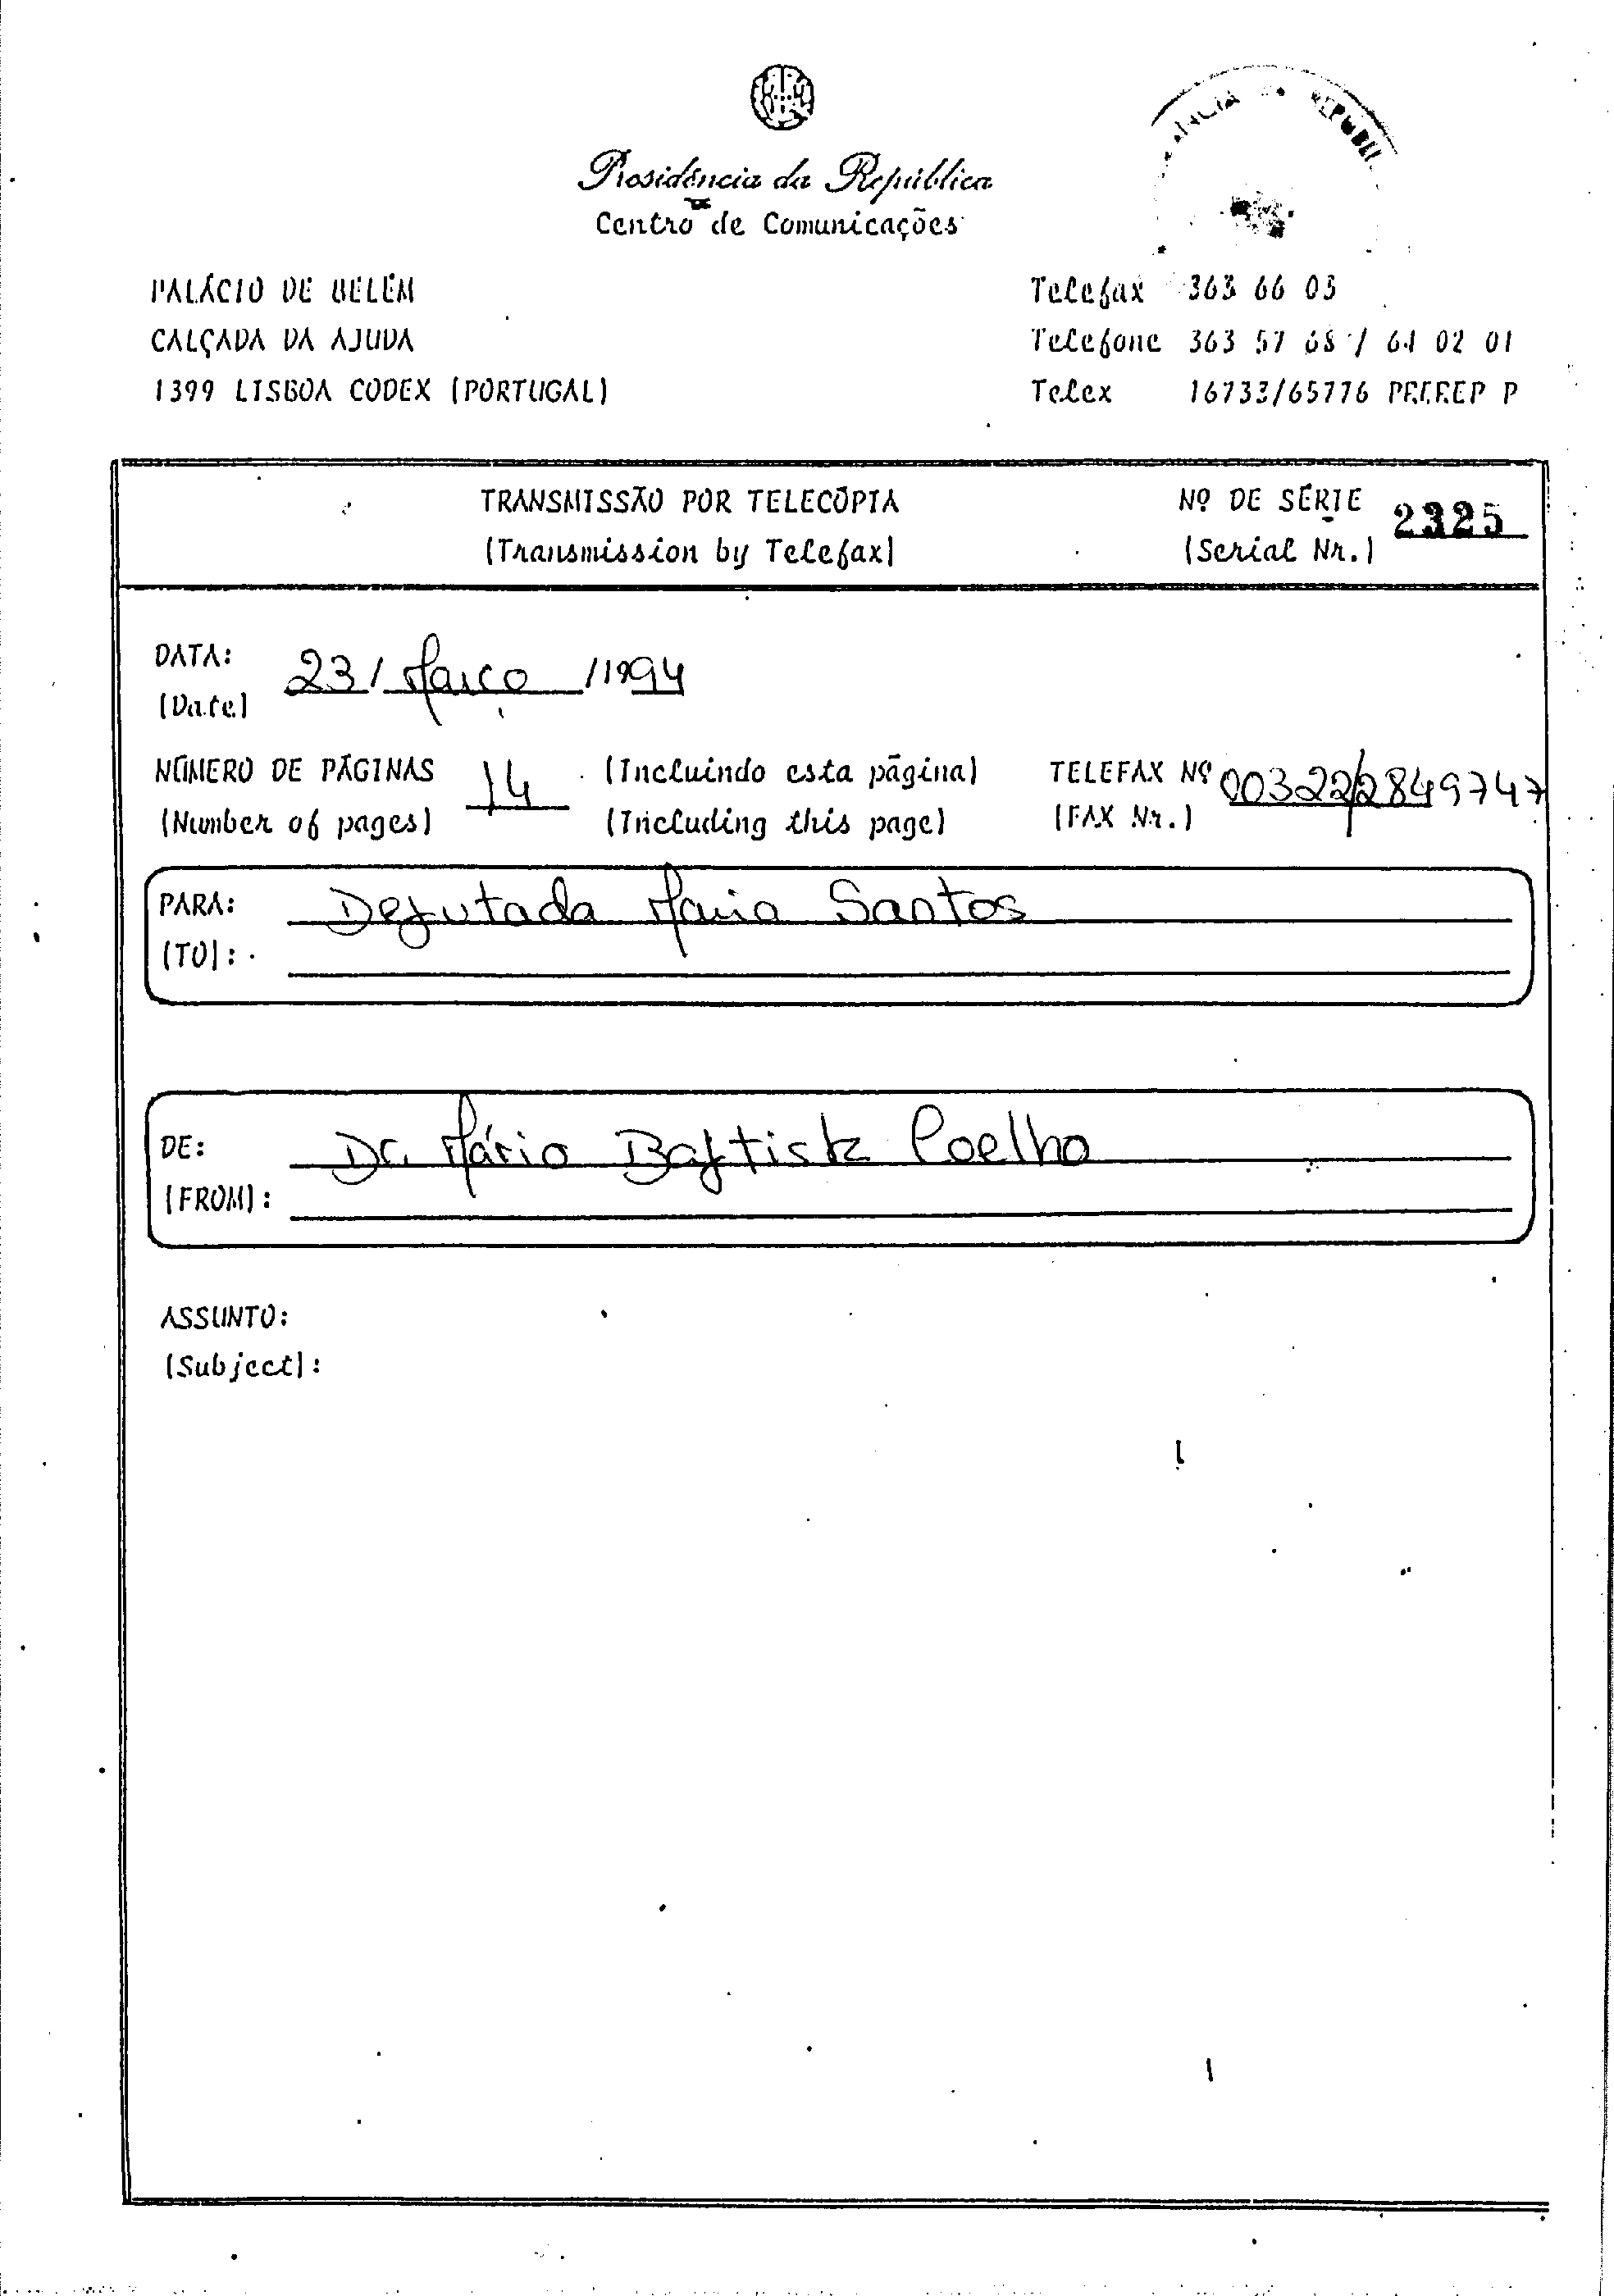 Presidência da República
Centro de Comunicações
PALÁCIO DE BELÉM
CALÇADA DA AJUDA
1399 LISBOA CODEX (PORTUGAL)
Telefax 363 66 03
Telefone 363 57 68 / 64 02 01
Telex 16733/65776
TRANSMISSÃO POR TELECÓPIA
(Transmission by Telefax)
Nº DE SÉRIE 2325
(Serial Nr.)
DATA: 23 / Março / 1994
(Date)
NÚMERO DE PÁGINAS 14 (Incluindo esta página) TELEFAX Nº 00322/2849747
(Number of pages) (Including this page) (FAX Nr.)
PARA: Deputada Maria Santos
(TO):
DE: Dr. Mário Baptista Coelho
(FROM):
ASSUNTO:
(Subject):